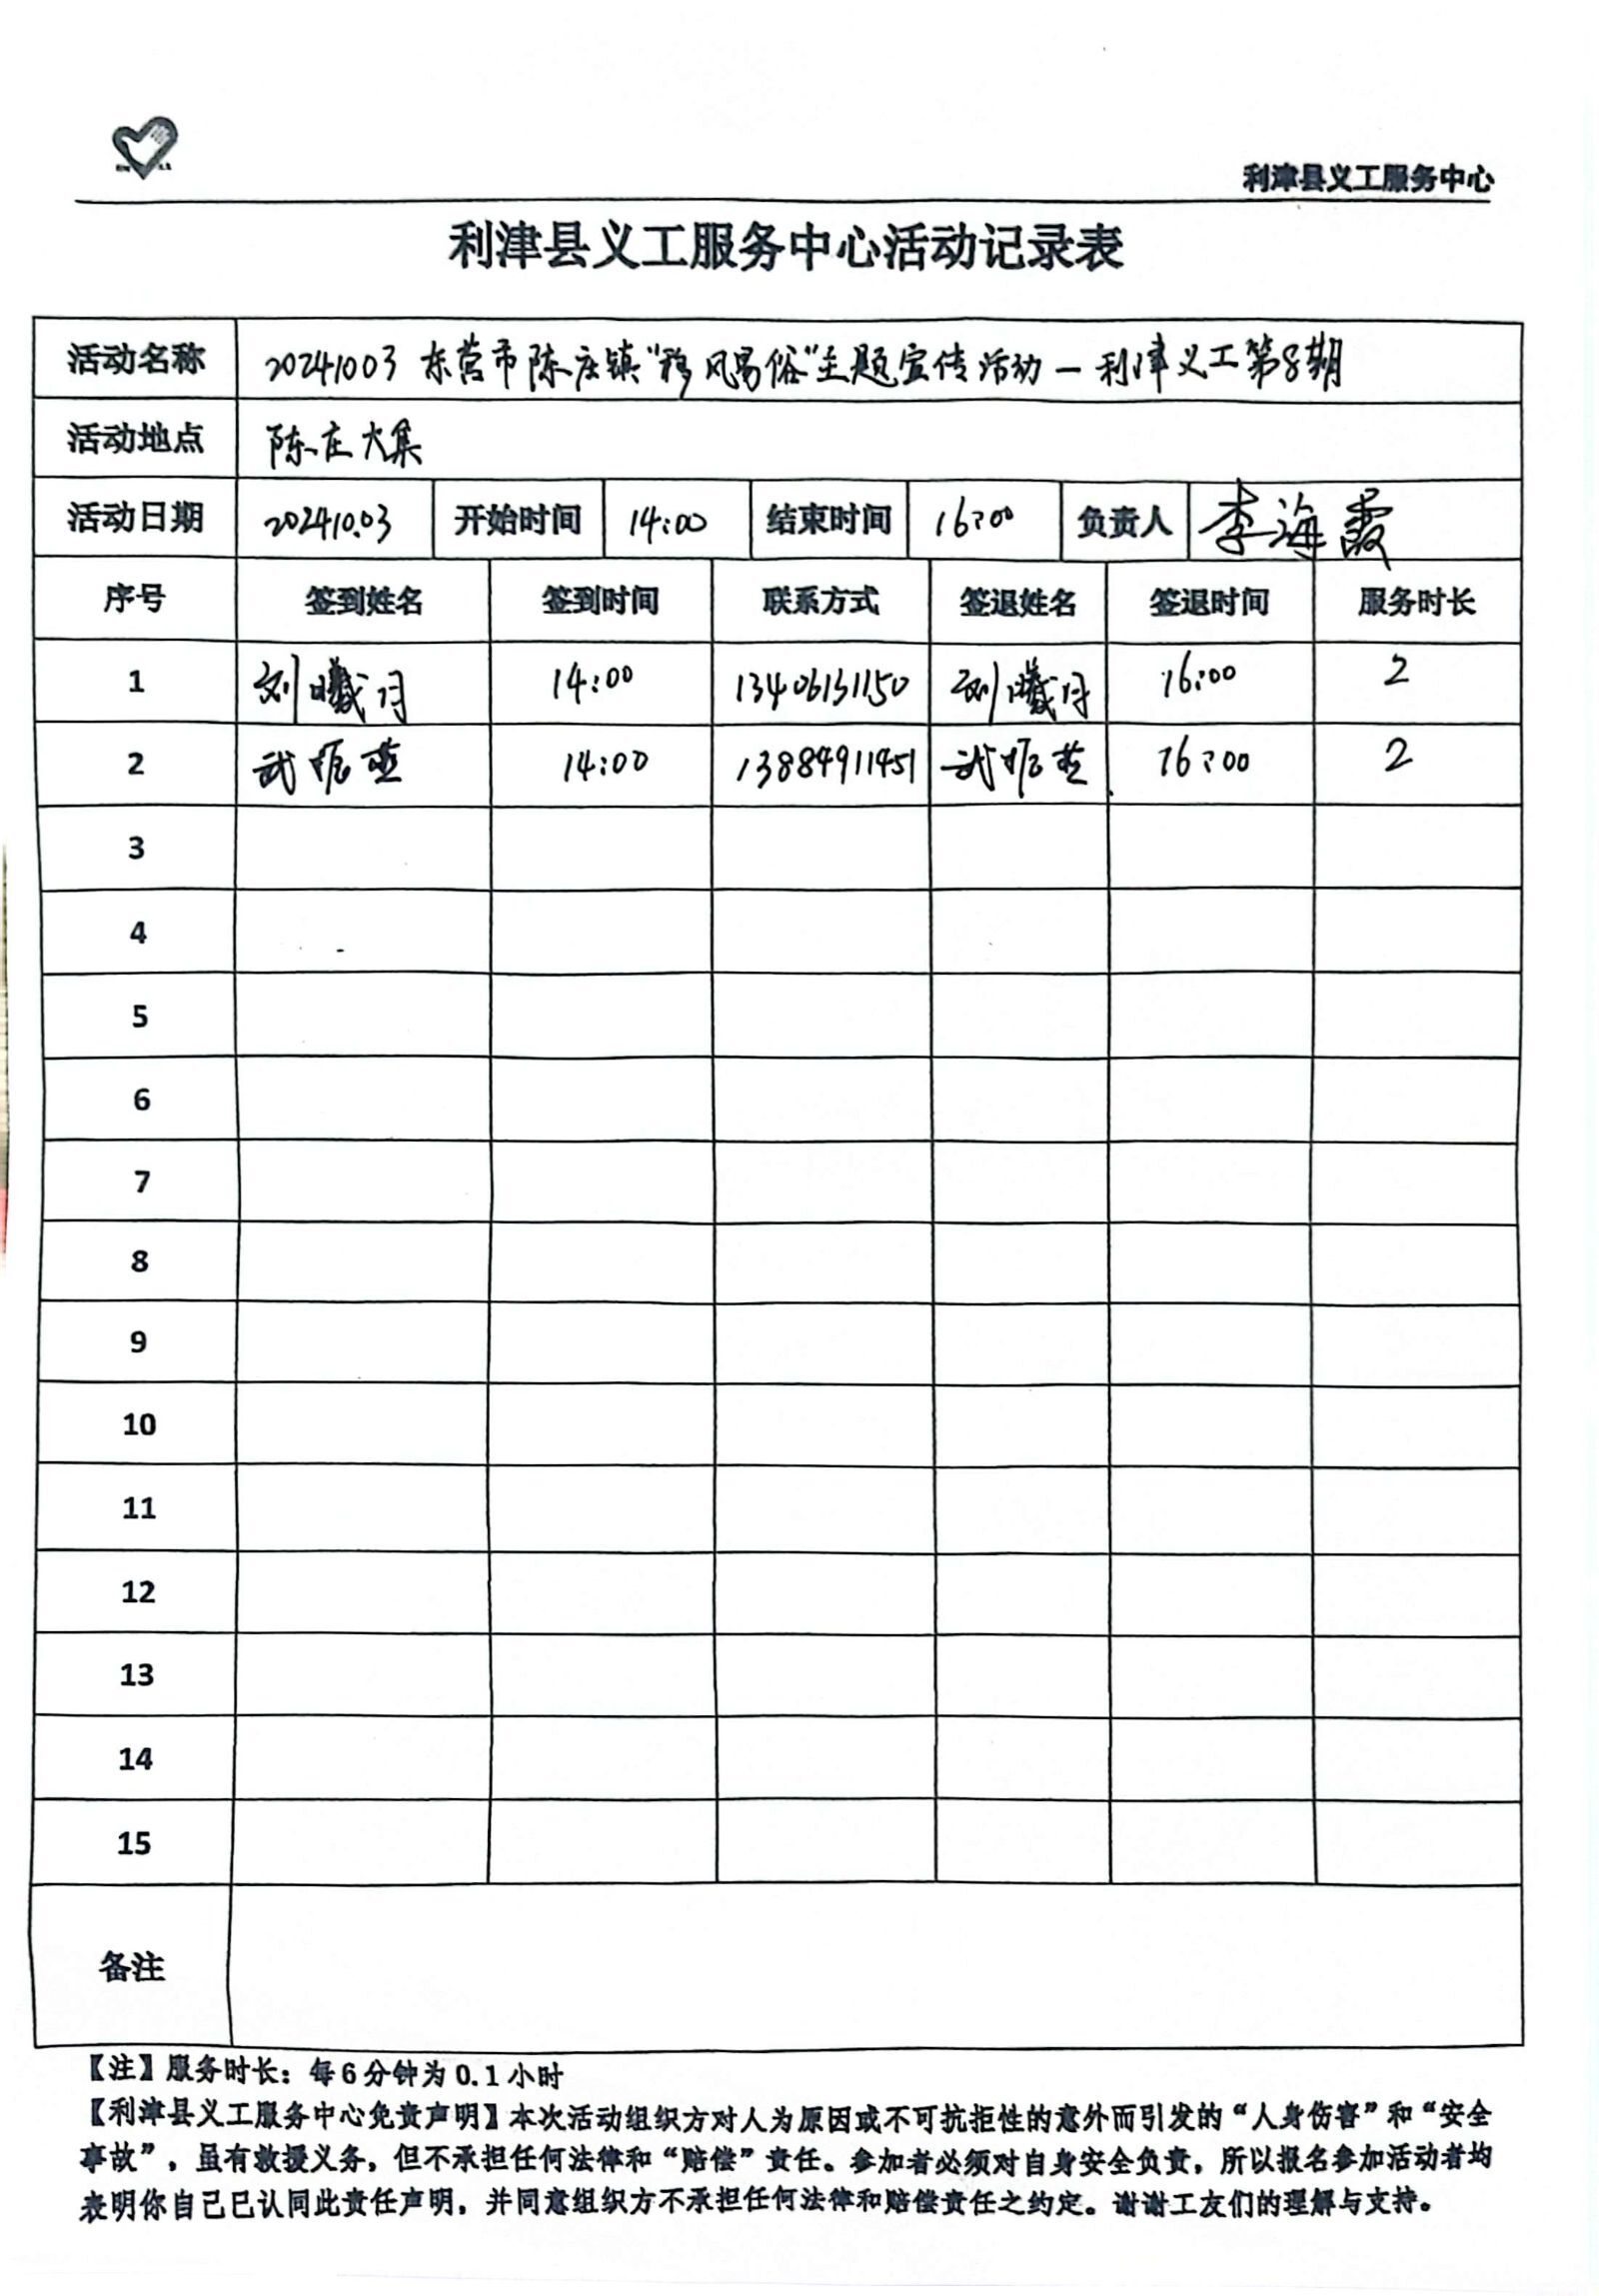 利津县义工服务中心
利津县义工服务中心活动记录表
活动名称 20241003 东营市陈庄镇“移风易俗”主题宣传活动—利津义工第8期
活动地点 陈庄大集
活动日期 202410.03 开始时间 14:00 结束时间 16:00 负责人 李海霞
序号 签到姓名 签到时间 联系方式 签退姓名 签退时间 服务时长
1 刘曦月 14:00 13406131150 刘曦月 16:00 2
2 武 14:00 13884911451 武 16:00 2
3
4
5
6
7
8
9
10
11
12
13
14
15
备注
【注】服务时长：每6分钟为0.1小时
【利津县义工服务中心免责声明】本次活动组织方对人为原因或不可抗拒性的意外而引发的“人身伤害”和“安全
事故”，虽有救援义务，但不承担任何法律和“赔偿”责任。参加者必须对自身安全负责，所以报名参加活动者均
表明你自己已认同此责任声明，并同意组织方不承担任何法律和赔偿责任之约定。谢谢工友们的理解与支持。